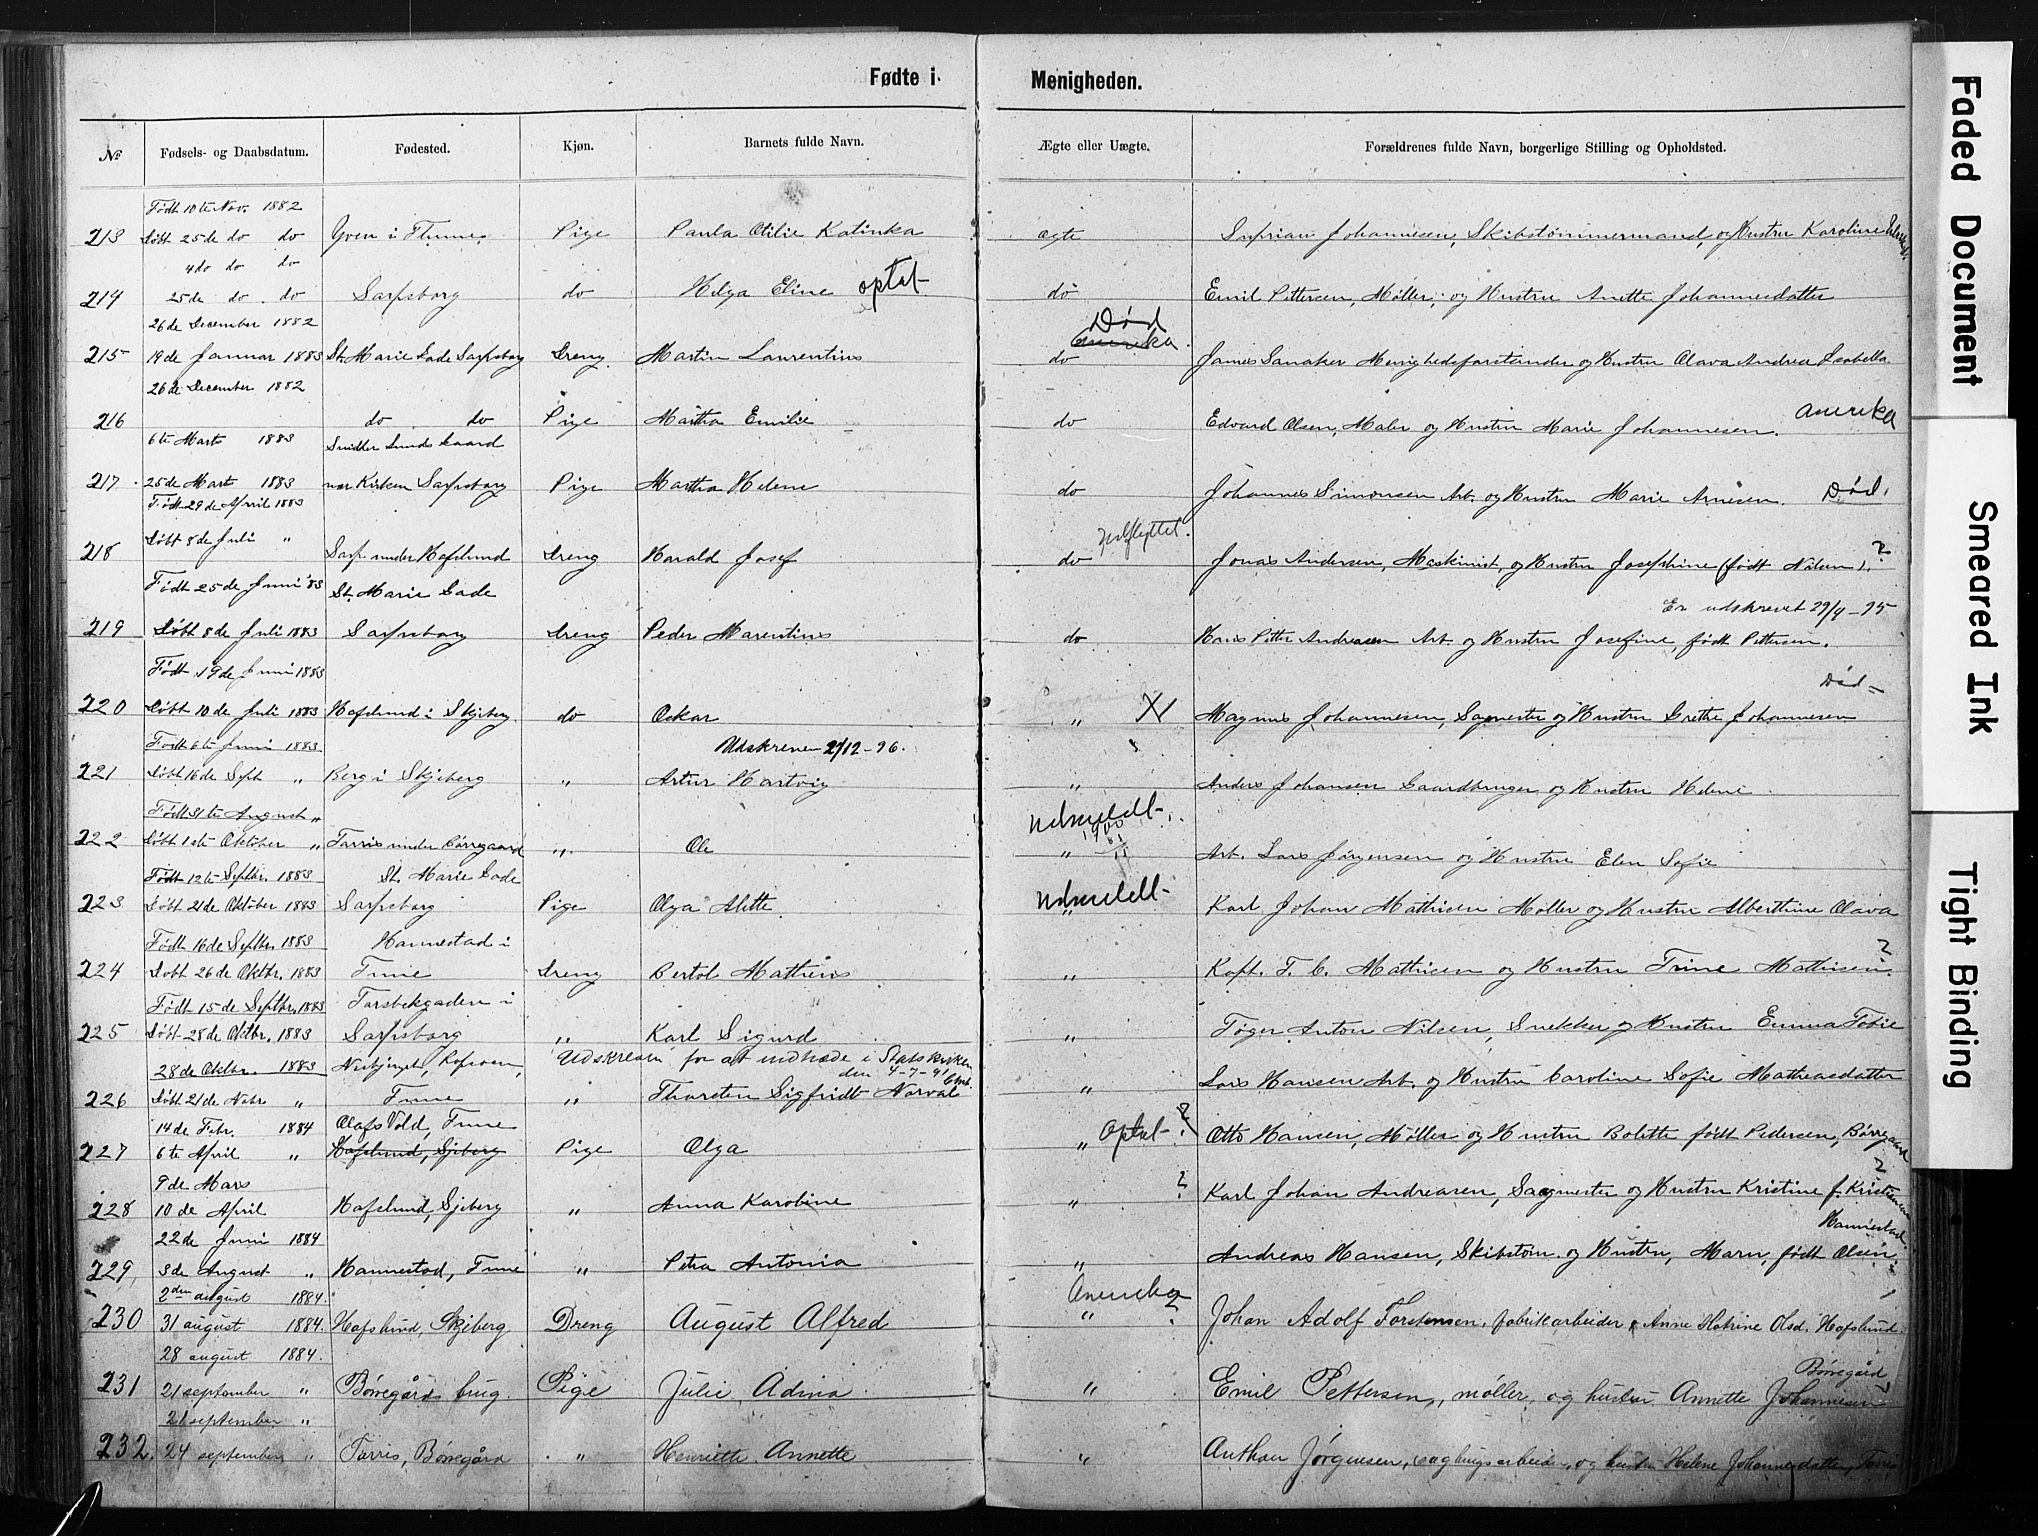 Fødte i Menigheden.
№ Fødsels- og Daabsdatum. Fødested. Kjøn. Barnets fulde Navn. Ægte eller Uægte. Forældrenes fulde Navn, borgerlige Stilling og Opholdsted.
Født 10te Nov. 1882
213 Døbt 25de do do Yven i Thune, Pige Paula Otilie Katinka ægte Johannesen, Skibstømmermand, og Hustru Karoline
4 do do do
214 25de do. do Sarpsborg do Helga Eline optat do Emil Pettersen, Møller, og Hustru Anette Johannesdatter
26de December 1882 Død
Amerika.
215 19de Januar 1883 St. Marie Gade Sarpsborg Dreng. Martin Laurentius do James Sanaker Menighedsforstander og Hustru Olava Andrea Isabella.
26de December 1882
216 do do Pige Martha Emilie do Edvard Olsen, Maler og Hustru Marie Johannesen. Amerika
6te Marts 1883 Snidker Lunds Gaard
217 25de Mart 1883 nær Kirken Sarpsborg Pige Martha Helene do Johannes Simonsen Arb. og Hustru Marie Arnesen. Død.
Født 29de April 1883
218 Døbt 8de Juli " Sarp under Hafslund Dreng Harald Josef do Udflyttet. Jonas Andersen, Maskinist, og Hustru Josephine (født Nilsen). ?
Født 25de Juni 83 St. Marie Gade
Er udskrevet 29/4-95
219 Døbt 8de Juli 1883 Sarpsborg Dreng Peder Marentius do Hans Petter Andreasen Arb. og Hustru Josefine, født Pettersen.
Født 19de Juni 1883
Død-
220 Døbt 10de Juli 1883 Hafslund i Skjeberg. do Oskar " X Magnus Johannesen, Sagmester og Hustru Grethe Johannesen
Født 6te Juni 1883. Udskreven 2/12-96.
221 Døbt 16de Sept " Berg i Skjeberg " Artur Hartvig " Anders Johansen Gaardbruger og Hustru Helene
Født 31te August " Udmeldt
1900
222 Døbt 1ste Oktober " Tarris under Borregaard " Ole " Arb. Lars Jørgensen og Hustru Elen Sofie
Født 12te Septbr. 1883 St. Marie Gade
223 Døbt 21de Oktober 1883 Sarpsborg Pige Olga Alette. " Udmeldt- Karl Johan Mathisen Møller og Hustru Alberthine Olava
Født 16de Septbr. 1883 Hannestad i
224 Døbt 26de Oktbr. 1883 Tune Dreng Bertol Mathius " Kapt. T. C. Mathisen og Hustru Trine Mathisen. ?
Født 15de Septbr. 1883 Torsbekgaden i
225 Døbt 28de Oktbr. 1883 Sarpsborg " Karl Sigurd " Tøger Anton Nilsen, Snekker og Hustru Emma Tobie
28de Oktbr. 1883 Udskreven for at indtræde i Statskirken
den 4-7-91
226 Døbt 21de Nobr " Tune " Thorsten Sigfridt Norval " Lars Hansen Arb. og Hustru Caroline Sofie Matheasdatter
14de Febr. 1884 Olafs Vold, Tune
227 6te April " Hafslund, Sjeberg Pige Olga " Optat ? Otto Hansen, Møller og Hustru Bolette født Pedersen, Børregaard
9de Mars
228 10de April Hafslund, Sjeberg " Anna Karoline " ? Karl Johan Andreasen, Sagmester og Hustru Kristine f. Kristiansen ?
22de Juni 1884 Hannestad.
229 3de August " Hannestad, Tune " Petra Antonia " Andreas Hansen, Skibstøm. og Hustru, Marn, født Olsen
2den august 1884. Amerika
230 31 august 1884. Hafslund, Skjeberg. Dreng August Alfred " ? Johan Adolf Torstensen, fabrikarbeider & Anne Katrine Olsd. Hafslund.
28 august 1884.
231 21 september " Børregårds brug. Pige Julie Adina. " Emil Pettersen, møller, og hustru Annette Johannesen Børregård
21 september "
232. 24 september " Tarris, Børregård " Henriette Annette " Anthon Jørgensen, og hustru Helene Johannesdatter, Tarris
Faded Document
Smeared Ink
Tight Binding